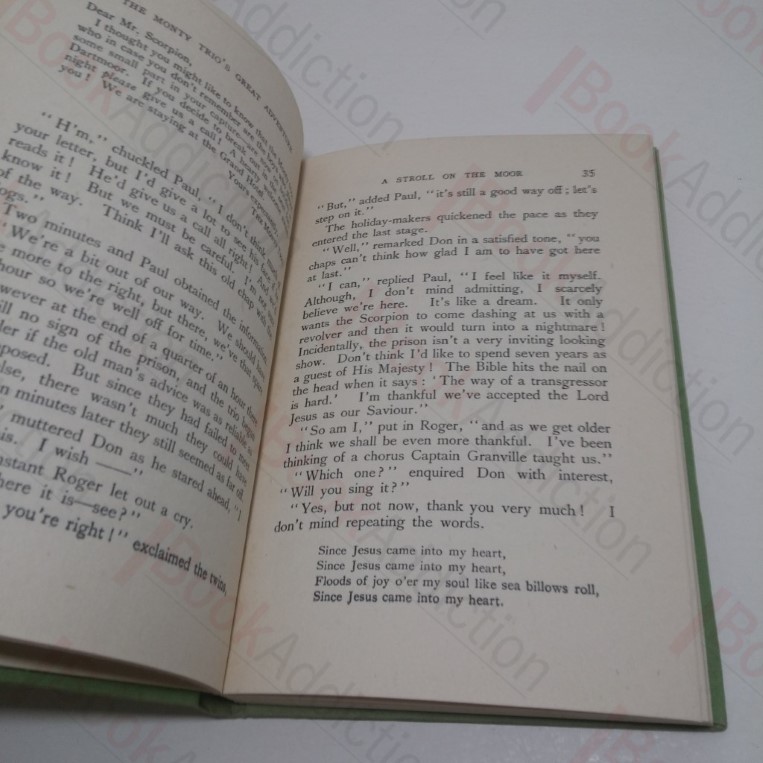 THE MONTY TRIO'S GREAT ADVENTURE
Dear Mr. Scorpion,
I thought you might like to know that the
who in case you don't remember are the boys
some small part in your capture—are
Dartmoor. If you decide to break out
night please give us a call! A hearty
you! We are staying at the Grand Hotel
Yours
"H'm," chuckled Paul, "I don't think
your letter, but I'd give a lot to see his face
reads it! He'd give us a call all right! And
know it! But we must be careful. I'm not
of the way. Think I'll ask this old chap with the
ogs."
Two minutes and Paul obtained the information
"We're a bit out of our way. We should have
e more to the right, but there, we've that
hour so we're well off for time."
owever at the end of a quarter of an hour there
ill no sign of the prison, and the trio began
der if the old man's advice was as reliable as
pposed. But since they had failed to meet
else, there wasn't much they could have
n minutes later they still seemed as far off.
muttered Don as he stared ahead, "I
is. I wish —"
nstant Roger let out a cry.
here it is—see?"
you're right!" exclaimed the twins,
A STROLL ON THE MOOR 35
"But," added Paul, "it's still a good way off; let's
step on it."
The holiday-makers quickened the pace as they
entered the last stage.
"Well," remarked Don in a satisfied tone, "you
chaps can't think how glad I am to have got here
at last."
"I can," replied Paul, "I feel like it myself.
Although, I don't mind admitting, I scarcely
believe we're here. It's like a dream. It only
wants the Scorpion to come dashing at us with a
revolver and then it would turn into a nightmare!
Incidentally, the prison isn't a very inviting looking
show. Don't think I'd like to spend seven years as
a guest of His Majesty! The Bible hits the nail on
the head when it says: 'The way of a transgressor
is hard.' I'm thankful we've accepted the Lord
Jesus as our Saviour."
"So am I," put in Roger, "and as we get older
I think we shall be even more thankful. I've been
thinking of a chorus Captain Granville taught us."
"Which one?" enquired Don with interest,
"Will you sing it?"
"Yes, but not now, thank you very much! I
don't mind repeating the words.
Since Jesus came into my heart,
Since Jesus came into my heart,
Floods of joy o'er my soul like sea billows roll,
Since Jesus came into my heart.
BookAddiction